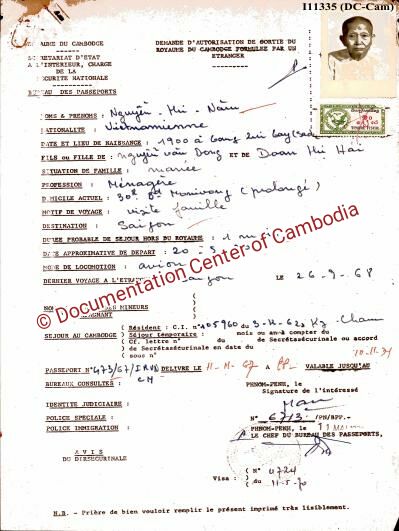 I11335 (DC-Cam)
ROYAUME DU CAMBODGE
DEMANDE D'AUTORISATION DE SORTIE DU
ROYAUME DU CAMBODGE FORMULEE PAR UN
ETRANGER
SECRETARIAT D'ETAT
A L'INTERIEUR, CHARGE
DE LA
SECURITE NATIONALE
BUREAU DES PASSEPORTS
NOMS & PRENOMS : Nguyễn
NATIONALITE : Vietnamienne
DATE ET LIEU DE NAISSANCE : 1900 à
FILS ou FILLE DE : nguyễn văn Dong ET DE Doan thi Hai
SITUATION DE FAMILLE : mariée
PROFESSION : Ménagère
DOMICILE ACTUEL : Bd Monivong (prolongé)
MOTIF DU VOYAGE : visite famille
DESTINATION : Saigon
DUREE PROBABLE DE SEJOUR HORS DU ROYAUME : 1
DATE APPROXIMATIVE DE DEPART : 20-5-70
MODE DE LOCOMOTION : avion
DERNIER VOYAGE A L'ETRANGER : Saigon LE 26-9-68
DES MINEURS
© Documentation Center of Cambodia
SEJOUR AU CAMBODGE ( Résident : C.I. n° 105960 du Cham
( Séjour temporaire : mois ou an à compter du
( Cf. lettre n° du de Secrétasécurinale ou accord
( de Secrétasécurinale en date du
( sous n°
PASSEPORT N° 473/67/ DELIVRE LE 11-11-67 A PP VALABLE JUSQU'AU 10-11-71
BUREAUX CONSULTES :
PHNOM-PENH, le
Signature de l'intéressé
IDENTITE JUDICIAIRE :
POLICE SPECIALE :
POLICE IMMIGRATION :
N° 6713 /PN/BPP.-
PHNOM-PENH, le 11 MAI
LE CHEF DU BUREAU DES PASSEPORTS,
A V I S
DU DIRSECURINALE
Visa : ( N° 4724
( du 11-5-70
N.B. - Prière de bien vouloir remplir le présent imprimé très lisiblement.